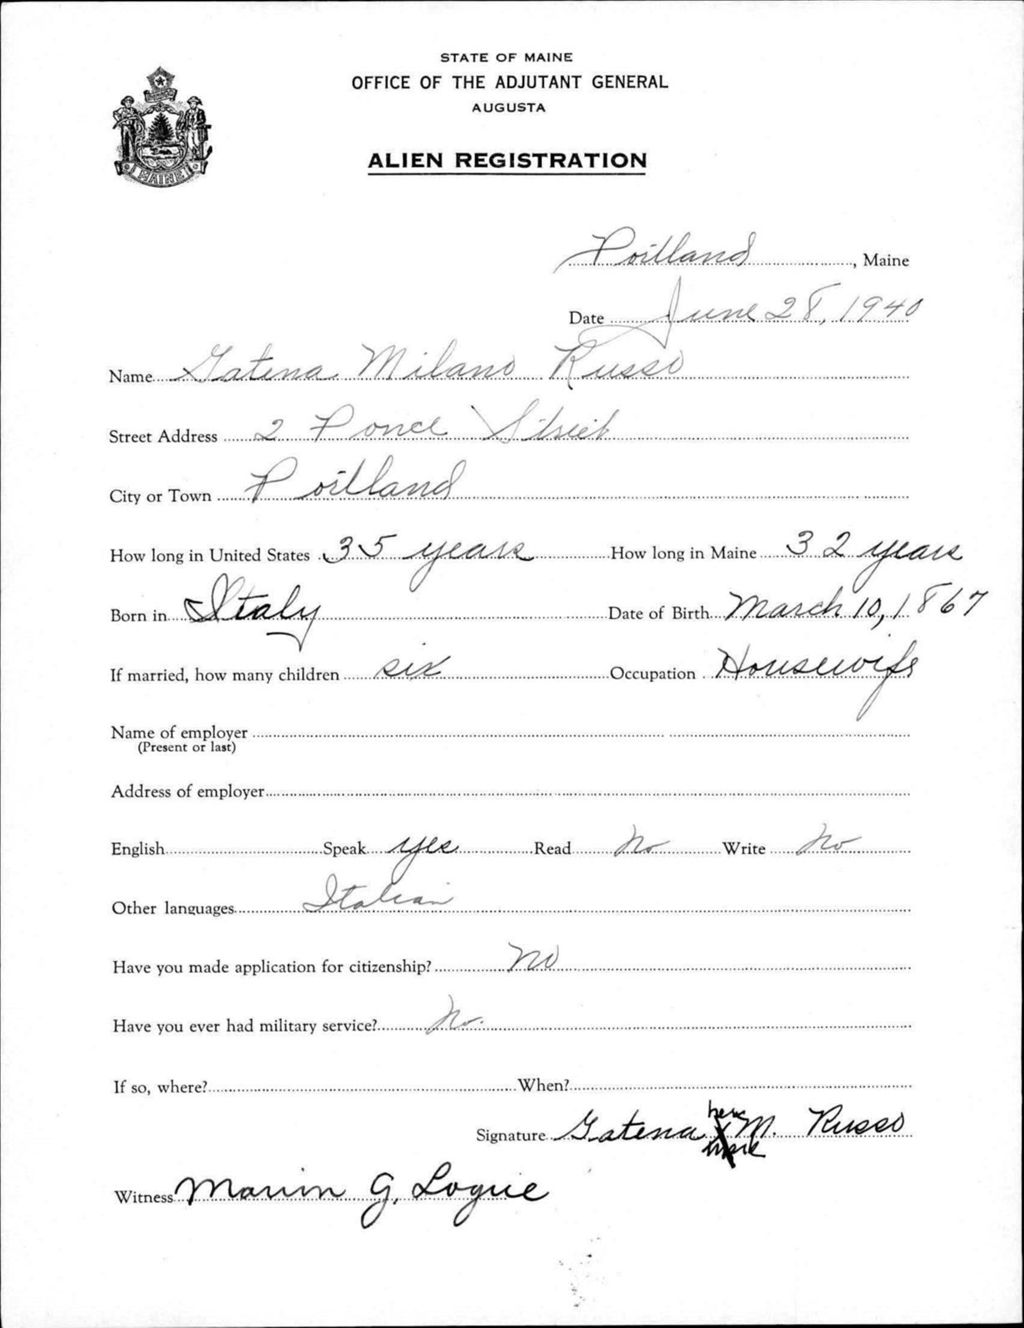 STATE OF MAINE
OFFICE OF THE ADJUTANT GENERAL
AUGUSTA
ALIEN REGISTRATION
MAINE
Portland, Maine
Date June 28, 1940
Name Gatena Milano Russo
Street Address 2 Ponce Street
City or Town Portland
How long in United States 35 years How long in Maine 32 years
Born in Italy Date of Birth March 10, 1867
If married, how many children six Occupation Housewife
Name of employer
(Present or last)
Address of employer
English Speak yes Read No Write No
Other languages Italian
Have you made application for citizenship? No
Have you ever had military service? No.
If so, where? When?
her
Signature Gatena X M. Russo
mark
Witness Marvin G. Logue